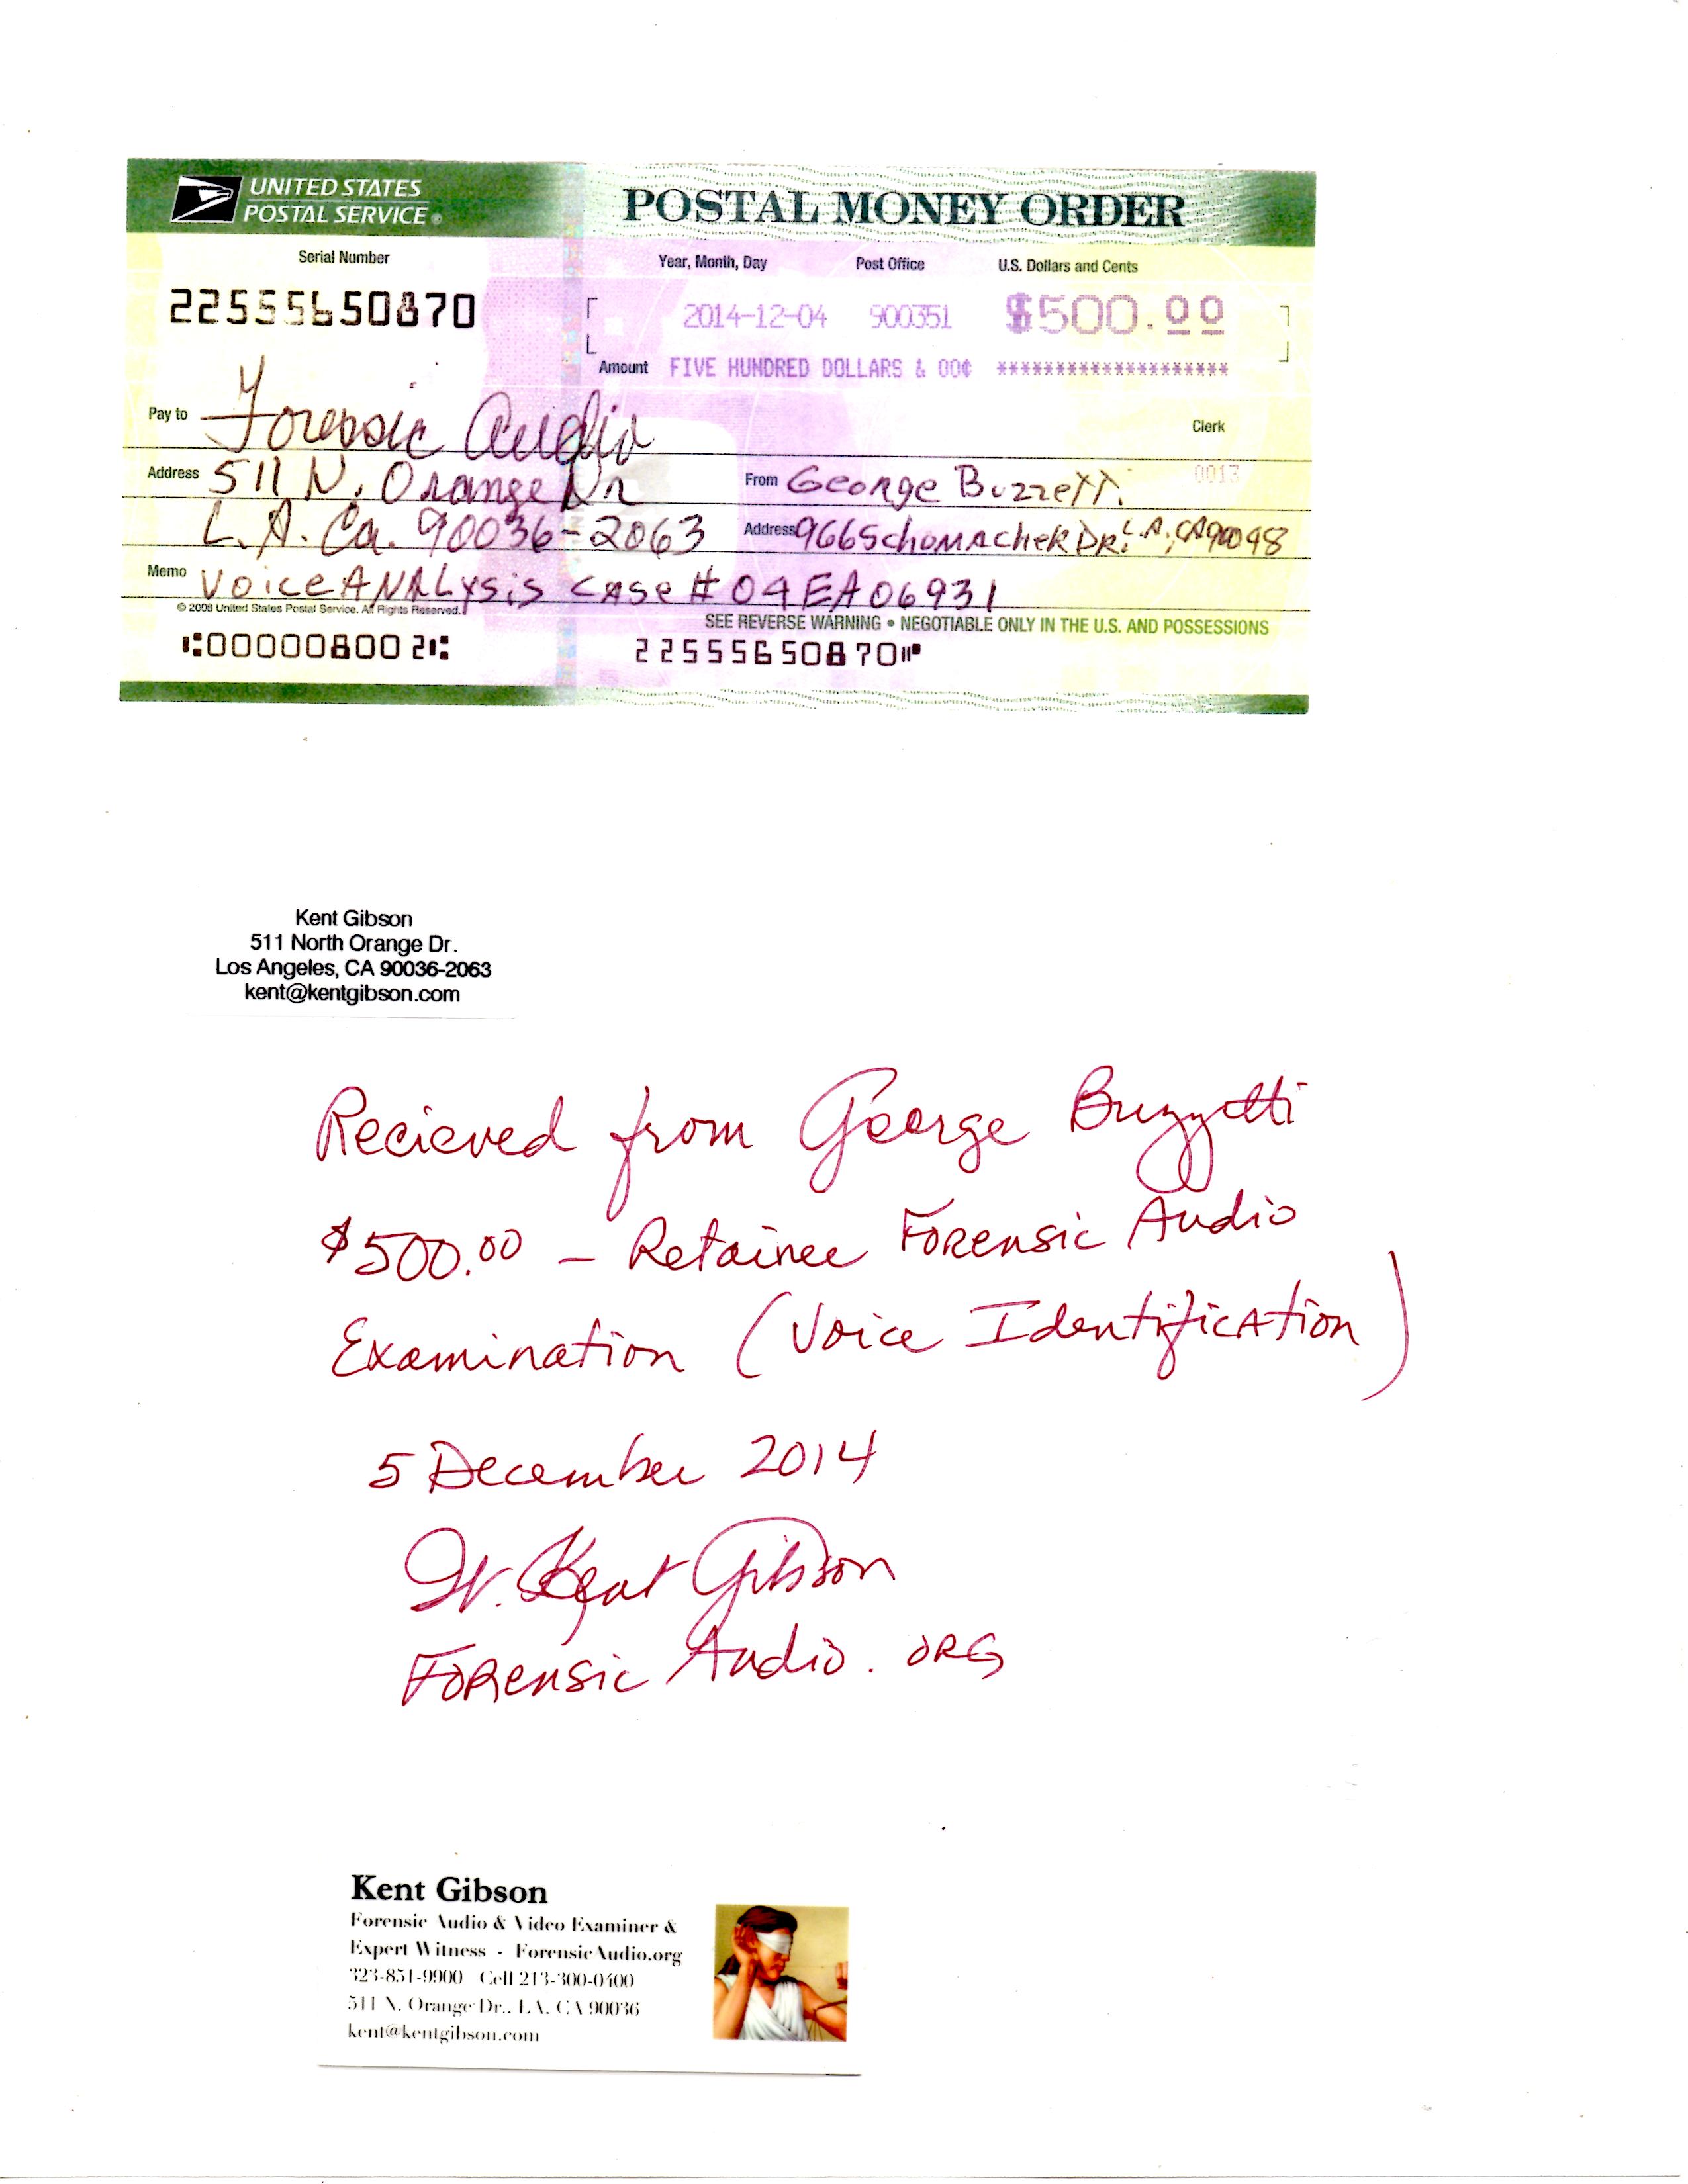 UNITED STATES
POSTAL SERVICE®
POSTAL MONEY ORDER
Serial Number
Year, Month, Day Post Office U.S. Dollars and Cents
22555650870
2014-12-04 900351 $500.00
Amount FIVE HUNDRED DOLLARS & 00¢ ********************
Pay to Forensic Audio
Clerk
0013
Address 511 N. Orange Dr
From George Buzzetti
L.A. Ca. 90036-2063
Address 966 Schumacher Dr. L.A, CA 90048
Memo Voice ANALYSis CASe # 04EA06931
© 2008 United States Postal Service. All Rights Reserved.
SEE REVERSE WARNING • NEGOTIABLE ONLY IN THE U.S. AND POSSESSIONS
⑆000008002⑆ 22555650870⑈
Kent Gibson
511 North Orange Dr.
Los Angeles, CA 90036-2063
kent@kentgibson.com
Recieved from George Buzzetti
$500.00 – Retainer Forensic Audio
Examination (Voice Identification)
5 December 2014
W. Kent Gibson
Forensic Audio. ORG
Kent Gibson
Forensic Audio & Video Examiner &
Expert Witness - ForensicAudio.org
323-851-9900 Cell 213-300-0400
511 N. Orange Dr., LA, CA 90036
kent@kentgibson.com